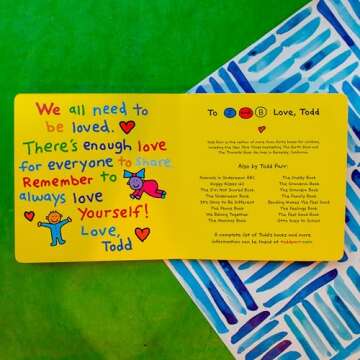 We all need to
be loved.
There's enough love
for everyone to share.
Remember to
always love
Yourself!
Love,
Todd
To
B Love, Todd
Todd Parr is the author of more than forty books for children,
including the New York Times bestselling The Earth Book and
The Thankful Book. He lives in Berkeley, California.
Also by Todd Parr:
Animals in Underwear ABC
Doggy Kisses 101
The I'm Not Scared Book
The Underwear Book
It's Okay To Be Different
The Peace Book
We Belong Together
The Mommy Book
The Daddy Book
The Grandma Book
The Grandpa Book
The Family Book
Reading Makes You Feel Good
The Feelings Book
The Feel Good Book
Otto Goes to School
A complete list of Todd's books and more
information can be found at toddparr.com.